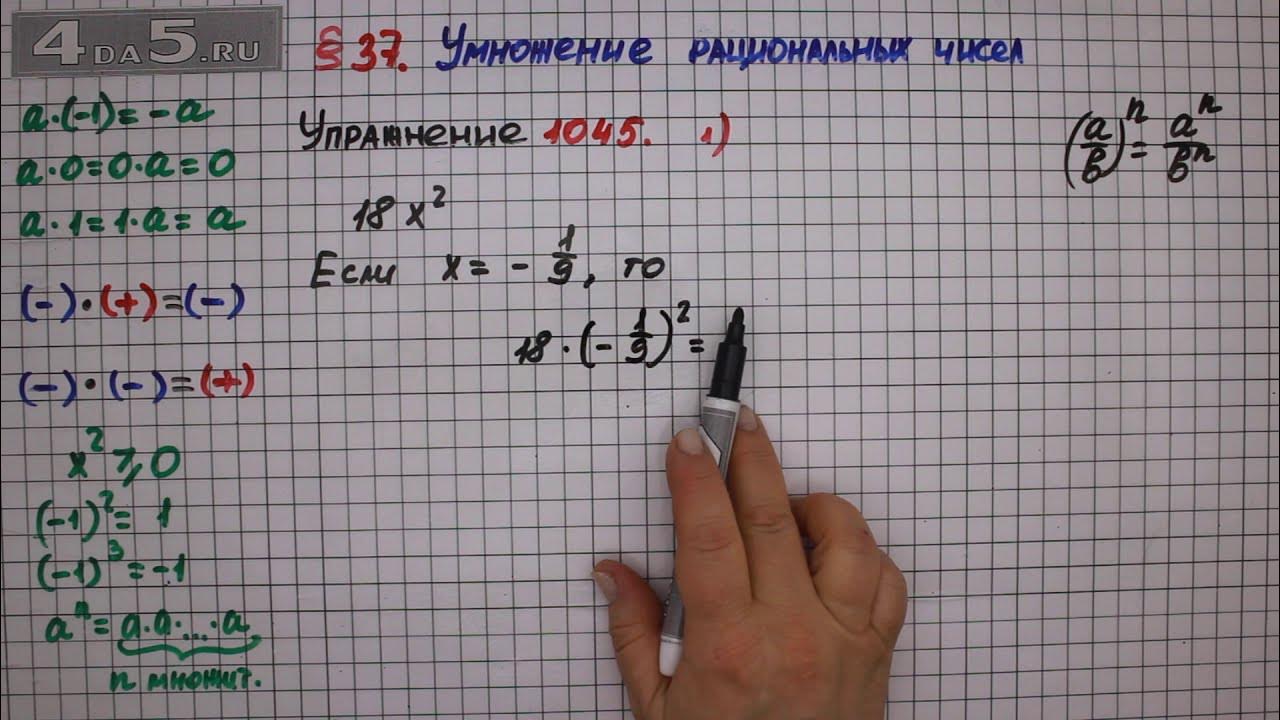 4DA5.RU
§ 37. Умножение рациональных чисел
a·(-1)=-a
a·0=0·a=0
a·1=1·a=a
(-)·(+)=(-)
(-)·(-)=(+)
x²⩾0
(-1)²=1
(-1)³=-1
aⁿ=a·a·...·a,
n множит.
Упражнение 1045. 1)
18x²
Если x=-1/9, то
18·(-1/9)²=
(a/b)ⁿ=aⁿ/bⁿ